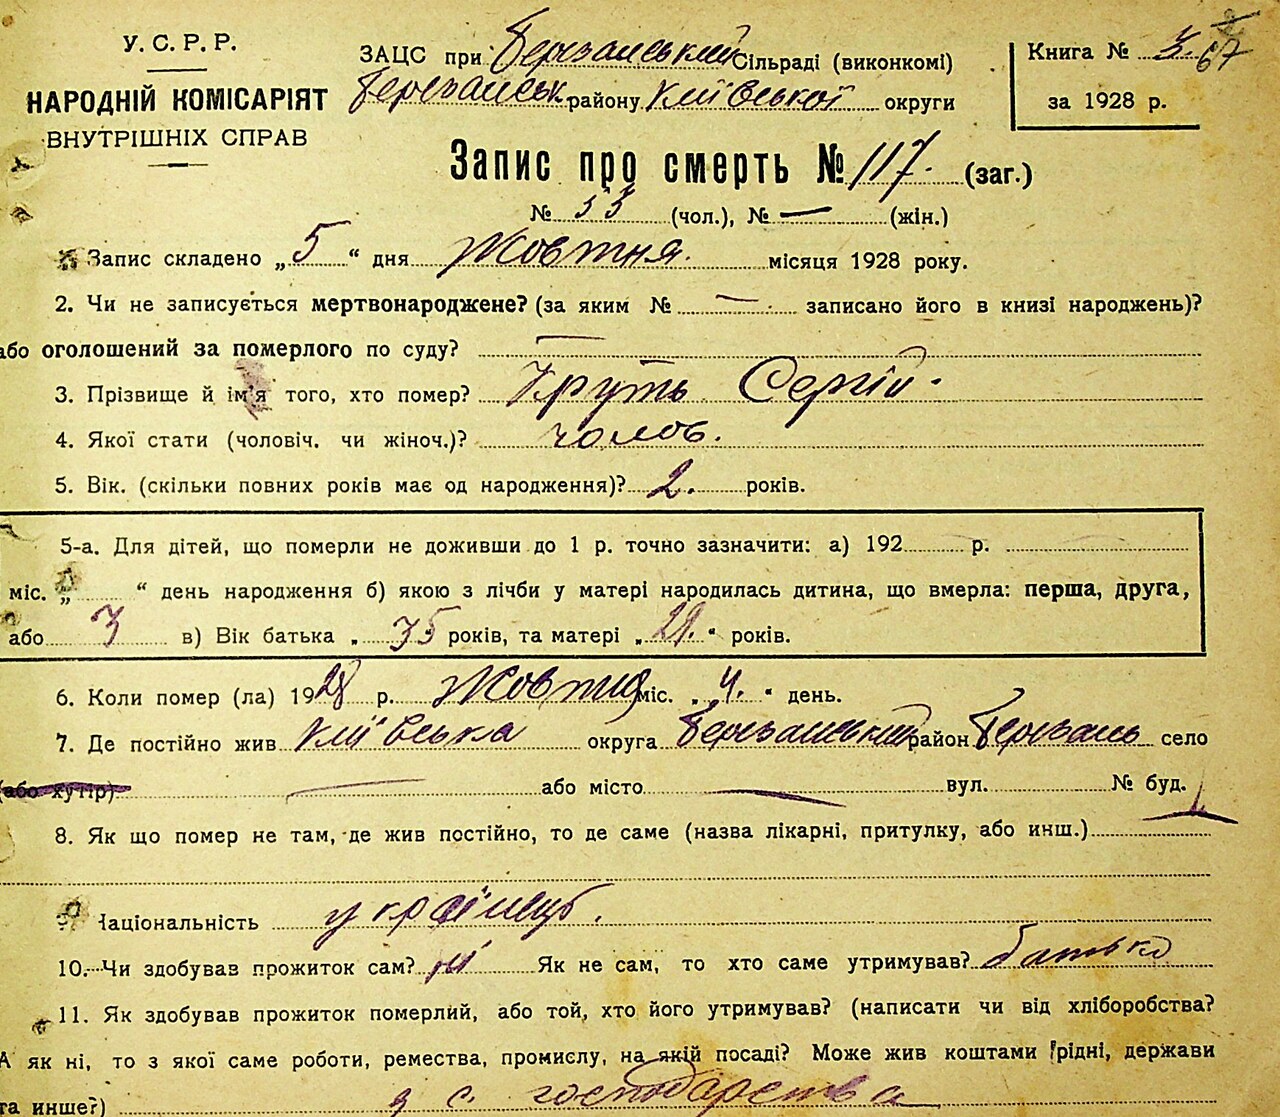 У. С. Р. Р.
НАРОДНІЙ КОМІСАРІЯТ
ВНУТРІШНІХ СПРАВ
ЗАЦС при Березанський Сільраді (виконкомі)
Березанськ. району Київської округи
Книга № 3. 67
за 1928 р.
Запис про смерть № 117. (заг.)
№ 55 (чол.), № — (жін.)
Запис складено „5“ дня Жовтня. місяця 1928 року.
2. Чи не записується мертвонароджене? (за яким № — записано його в книзі народжень)?
або оголошений за померлого по суду? —
3. Прізвище й ім'я того, хто помер? Круть Сергій.
4. Якої стати (чоловіч. чи жіноч.)? чолов.
5. Вік. (скільки повних років має од народження)? 2. років.
5-а. Для дітей, що померли не доживши до 1 р. точно зазначити: а) 192 р.
міс. „ “ день народження б) якою з лічби у матері народилась дитина, що вмерла: перша, друга,
або 3 в) Вік батька „ 35 років, та матері „ 29. “ років.
6. Коли помер (ла) 1928 р. Жовтня міс. „ 4. “ день.
7. Де постійно жив Київська округа Березанський район Березань село
(або хутір) — або місто — вул. № буд.
8. Як що помер не там, де жив постійно, то де саме (назва лікарні, притулку, або инш.)
9. Національність українець.
10. Чи здобував прожиток сам? ні Як не сам, то хто саме утримував? батько
11. Як здобував прожиток померлий, або той, хто його утримував? (написати чи від хліборобства?
А як ні, то з якої саме роботи, ремества, промислу, на якій посаді? Може жив коштами рідні, держави
та инше?) з с. господарства